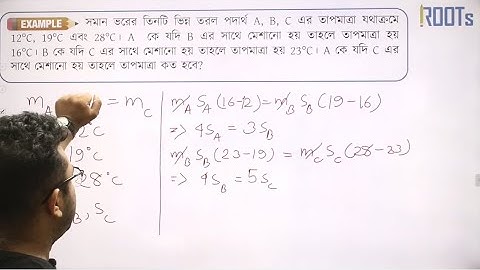 EXAMPLE
সমান ভরের তিনটি ভিন্ন তরল পদার্থ A, B, C এর তাপমাত্রা যথাক্রমে
12°C, 19°C এবং 28°C। A কে যদি B এর সাথে মেশানো হয় তাহলে তাপমাত্রা হয়
16°C। B কে যদি C এর সাথে মেশানো হয় তাহলে তাপমাত্রা হয় 23°C। A কে যদি C এর
সাথে মেশানো হয় তাহলে তাপমাত্রা কত হবে?
ROOTs
m_A = m_C
2°C
19°C
28°C
B, S_C
m_A S_A (16-12) = m_B S_B (19-16)
=> 4S_A = 3S_B
m_B S_B (23-19) = m_C S_C (28-23)
=> 4S_B = 5S_C